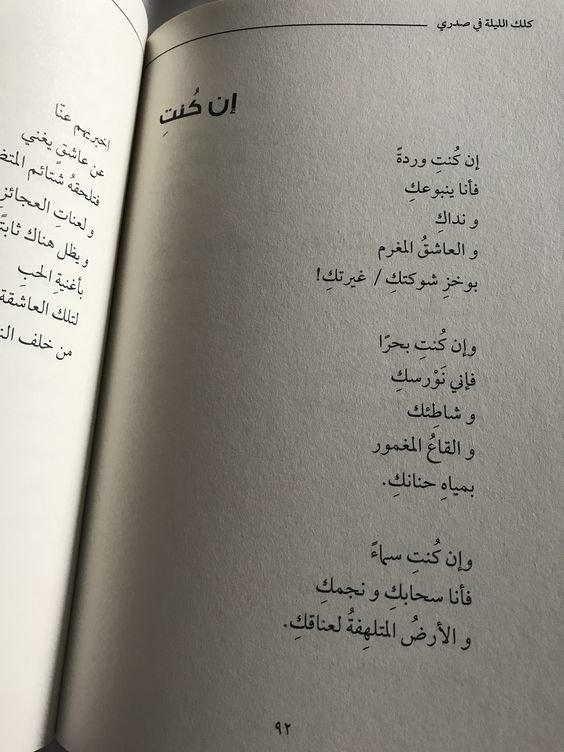 كلك الليلة في صدري
إن كُنتِ
إن كُنتِ وردةً
فأنا ينبوعكِ
و نداكِ
و العاشقُ المغرم
بوخزِ شوكتكِ / غيرتكِ!
وإن كُنتِ بحرًا
فإني نَوْرسكِ
و شاطِئك
و القاعُ المغمور
بمياهِ حنانكِ.
وإن كُنتِ سماءً
فأنا سحابكِ و نجمكِ
و الأرضُ المتلهِفةُ لعناقكِ.
٩٢
اخبريهم عنّا
عن عاشقٍ يغني
فتلحقهُ شتائم
و لعناتِ العجائزِ
و يظل هناك ثابتًا
بأغنيةِ الحبِ
لتلك العاشقة
من خلف